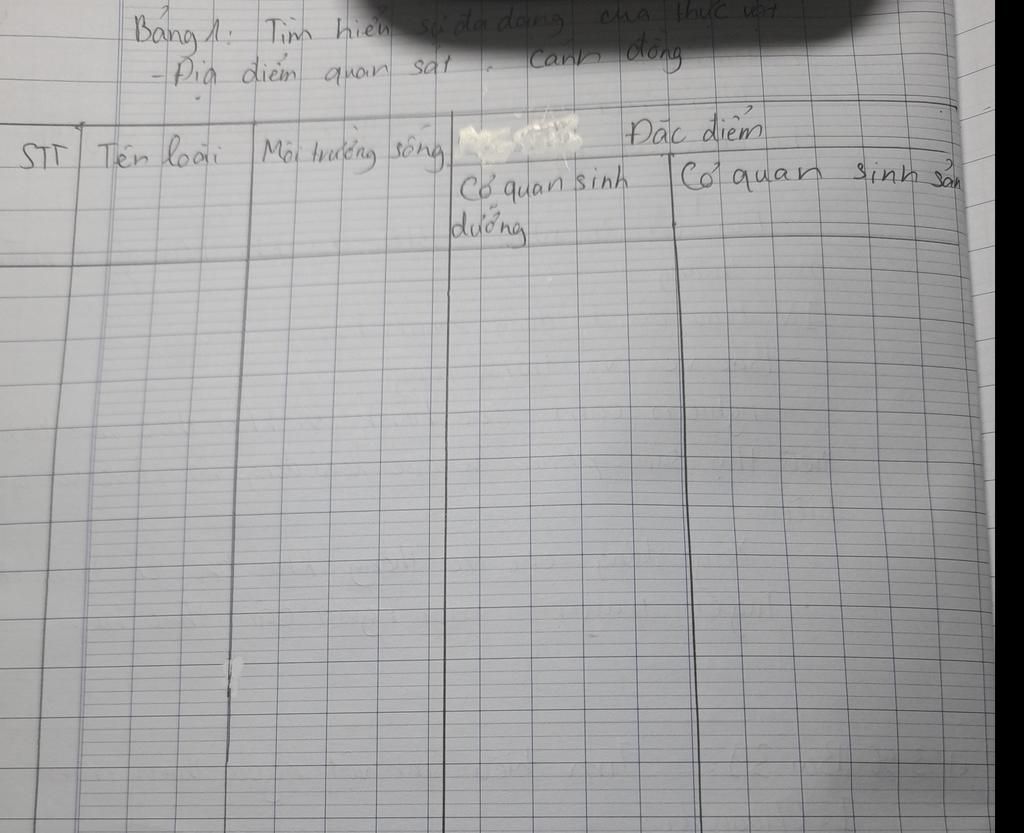 Bảng 1: Tìm hiểu sự đa dạng của thực vật
- Địa điểm quan sát : Cánh đồng
STT
Tên loài
Môi trường sống
Đặc điểm
Cơ quan sinh dưỡng
Cơ quan sinh sản